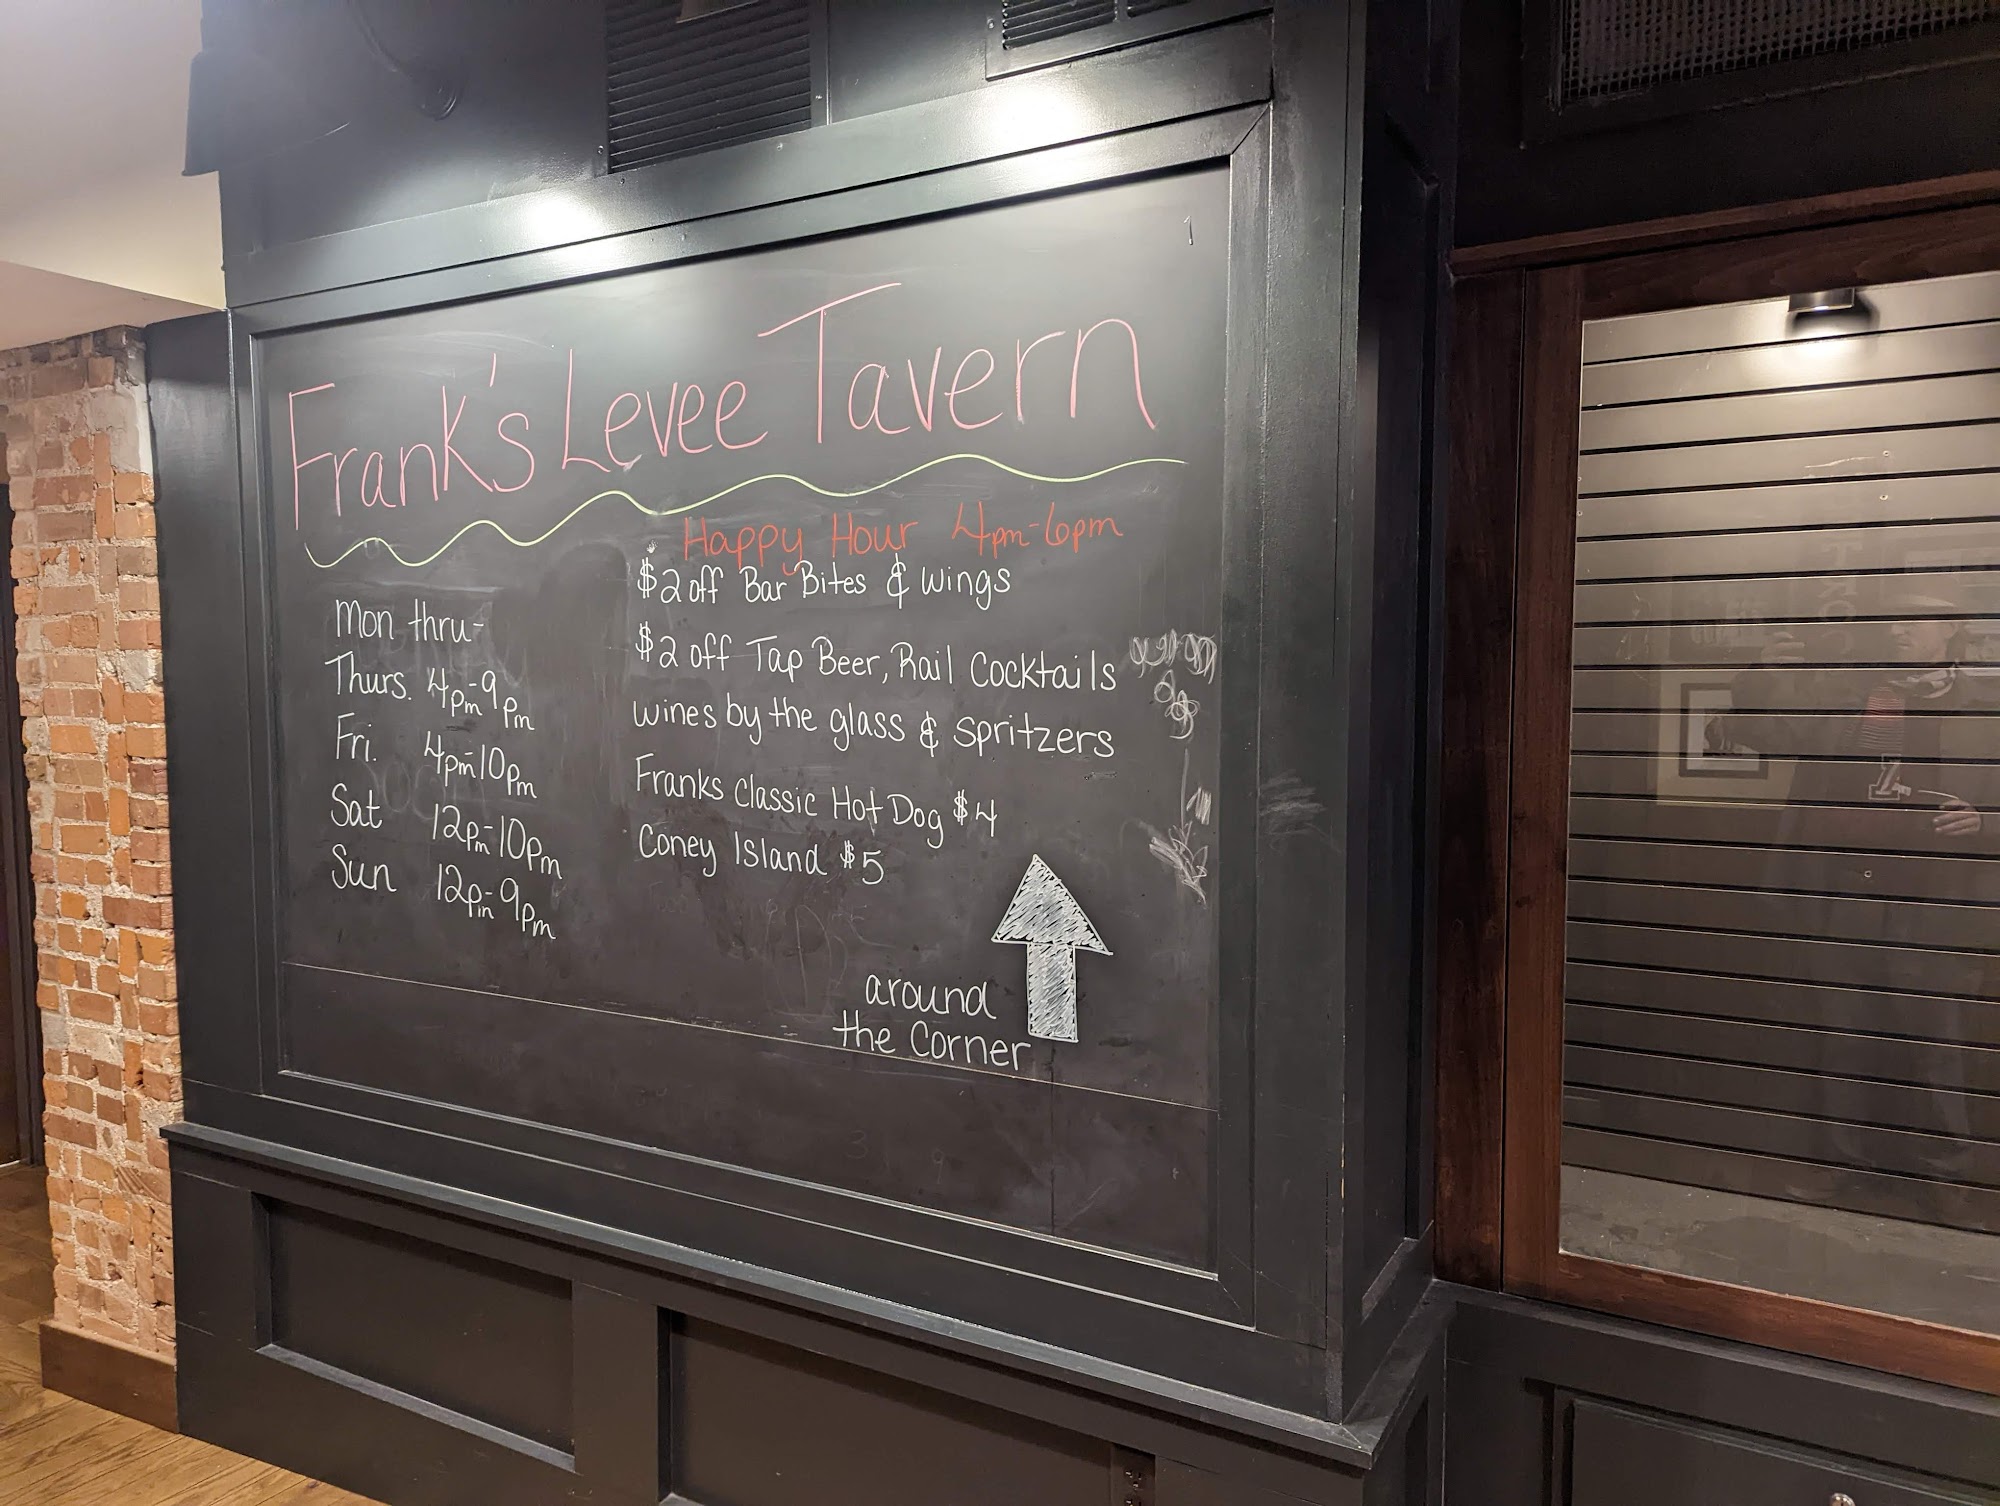 Frank's Levee Tavern
Happy Hour 4pm-6pm
$2 off Bar Bites & wings
$2 off Tap Beer, Rail Cocktails
wines by the glass & spritzers
Franks Classic Hot Dog $4
Coney Island $5
Mon thru-
Thurs. 4pm-9pm
Fri. 4pm-10pm
Sat 12pm-10pm
Sun 12pm-9pm
around
the Corner